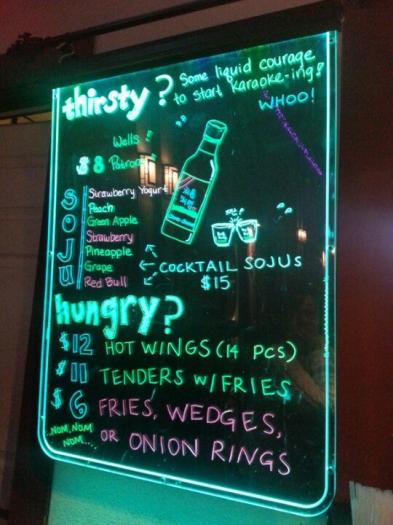 thirsty? Some liquid courage
to start Karaoke-ing!
WHOO!
Wells!
$8 Patron
SOJU
Strawberry Yogurt
Peach
Green Apple
Strawberry
Pineapple
Grape
Red Bull
COCKTAIL SOJUS
$15
hungry?
$12 HOT WINGS (14 PCS)
$11 TENDERS W/FRIES
$6 FRIES, WEDGES,
OR ONION RINGS
...NOM, NOM
NOM...